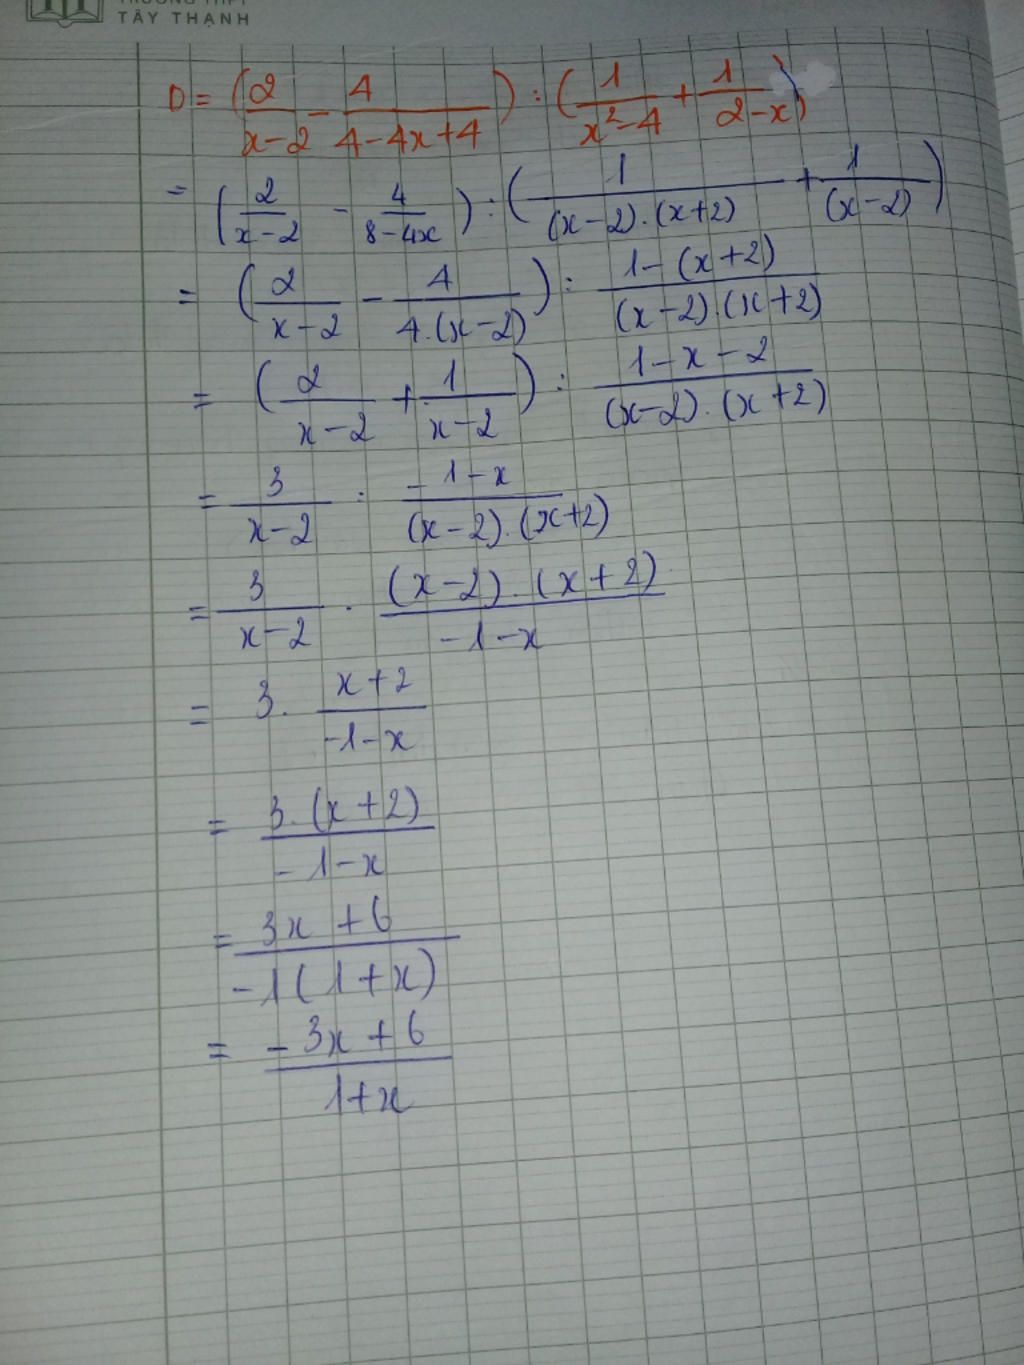 TRƯỜNG THPT
TÂY THẠNH
D = (2/(x-2) - 4/(4-4x+4)) : (1/(x²-4) + 1/(2-x))
= (2/(x-2) - 4/(8-4x)) : (1/((x-2).(x+2)) + 1/(x-2))
= (2/(x-2) - 4/(4.(x-2))) : (1-(x+2))/((x-2).(x+2))
= (2/(x-2) + 1/(x-2)) : (1-x-2)/((x-2).(x+2))
= 3/(x-2) : (-1-x)/((x-2).(x+2))
= 3/(x-2) . ((x-2).(x+2))/(-1-x)
= 3. (x+2)/(-1-x)
= (3.(x+2))/(-1-x)
= (3x+6)/(-1(1+x))
= (-3x+6)/(1+x)